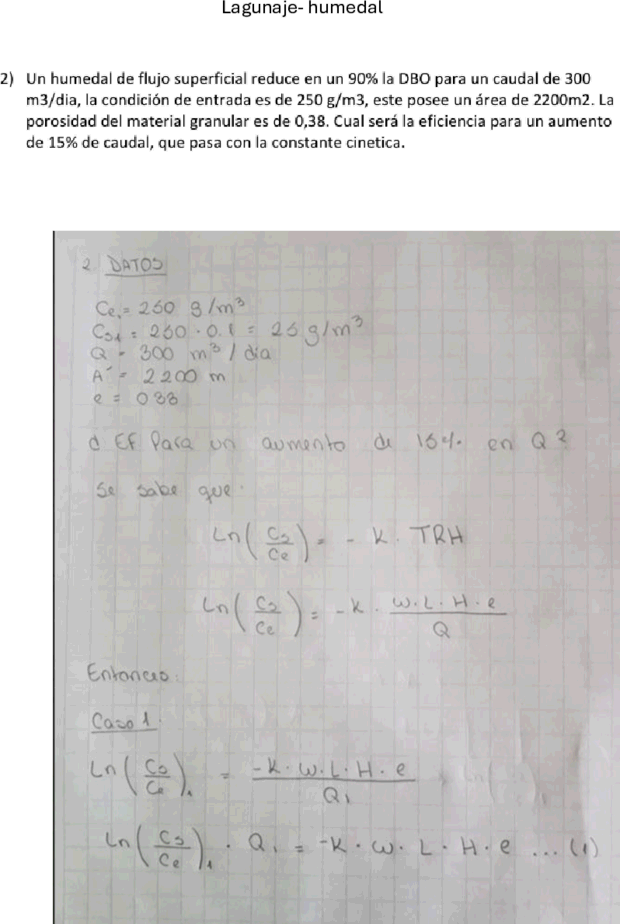 Lagunaje- humedal
2) Un humedal de flujo superficial reduce en un 90% la DBO para un caudal de 300
m3/dia, la condición de entrada es de 250 g/m3, este posee un área de 2200m2. La
porosidad del material granular es de 0,38. Cual será la eficiencia para un aumento
de 15% de caudal, que pasa con la constante cinetica.
2. DATOS
Ce1 = 250 g/m³
Cs1 = 250 · 0.1 = 25 g/m³
Q = 300 m³/dia
A = 2200 m
e = 038
¿ Ef Para un aumento de 15% en Q?
Se sabe que:
Ln(Cs/Ce) = - K · TRH
Ln(Cs/Ce) = -K · W·L·H·e/Q
Entonces:
Caso 1.
Ln(Cs/Ce)1 = -K·W·L·H·e/Q1
Ln(Cs/Ce)1 · Q1 = -K·W·L·H·e ...(1)